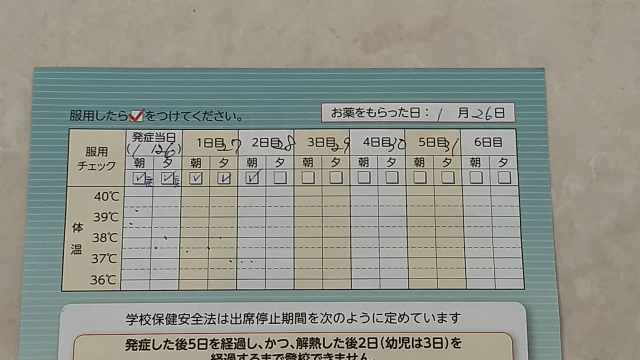 服用したら✓をつけてください。
お薬をもらった日： 1 月 26 日
服用チェック 発症当日 (1/26) 1日目 27 2日目 28 3日目 29 4日目 30 5日目 31 6日目
朝 夕 朝 夕 朝 夕 朝 夕 朝 夕 朝 夕 朝 夕
体温
40℃
39℃
38℃
37℃
36℃
学校保健安全法は出席停止期間を次のように定めています
発症した後5日を経過し、かつ、解熱した後2日(幼児は3日)を
経過するまで登校できません。